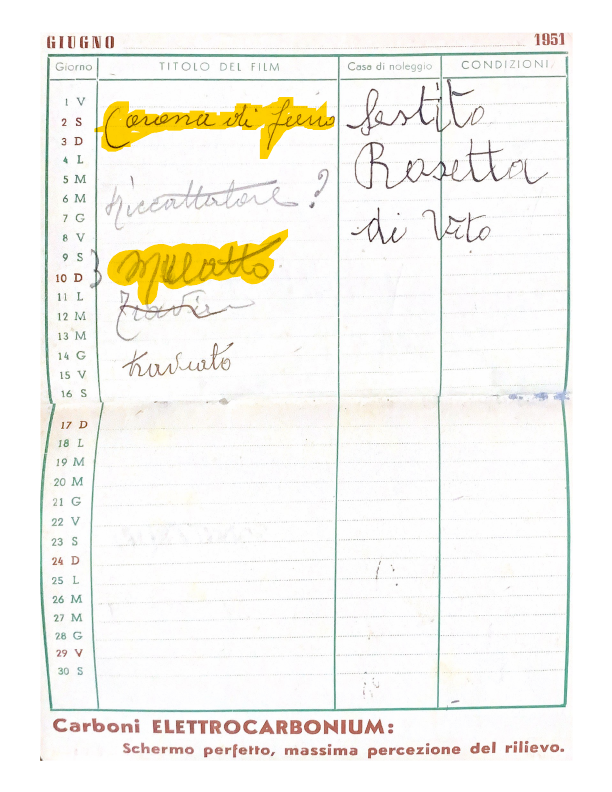 GIUGNO 1951
Giorno TITOLO DEL FILM Casa di noleggio CONDIZIONI
1 V
2 S Corona di ferro festito
3 D
4 L Rosetta
5 M
6 M Riccattatore ?
7 G di Vito
8 V
9 S Mulatto
10 D
11 L
12 M
13 M
14 G traviato
15 V
16 S
17 D
18 L
19 M
20 M
21 G
22 V
23 S
24 D
25 L
26 M
27 M
28 G
29 V
30 S
Carboni ELETTROCARBONIUM:
Schermo perfetto, massima percezione del rilievo.